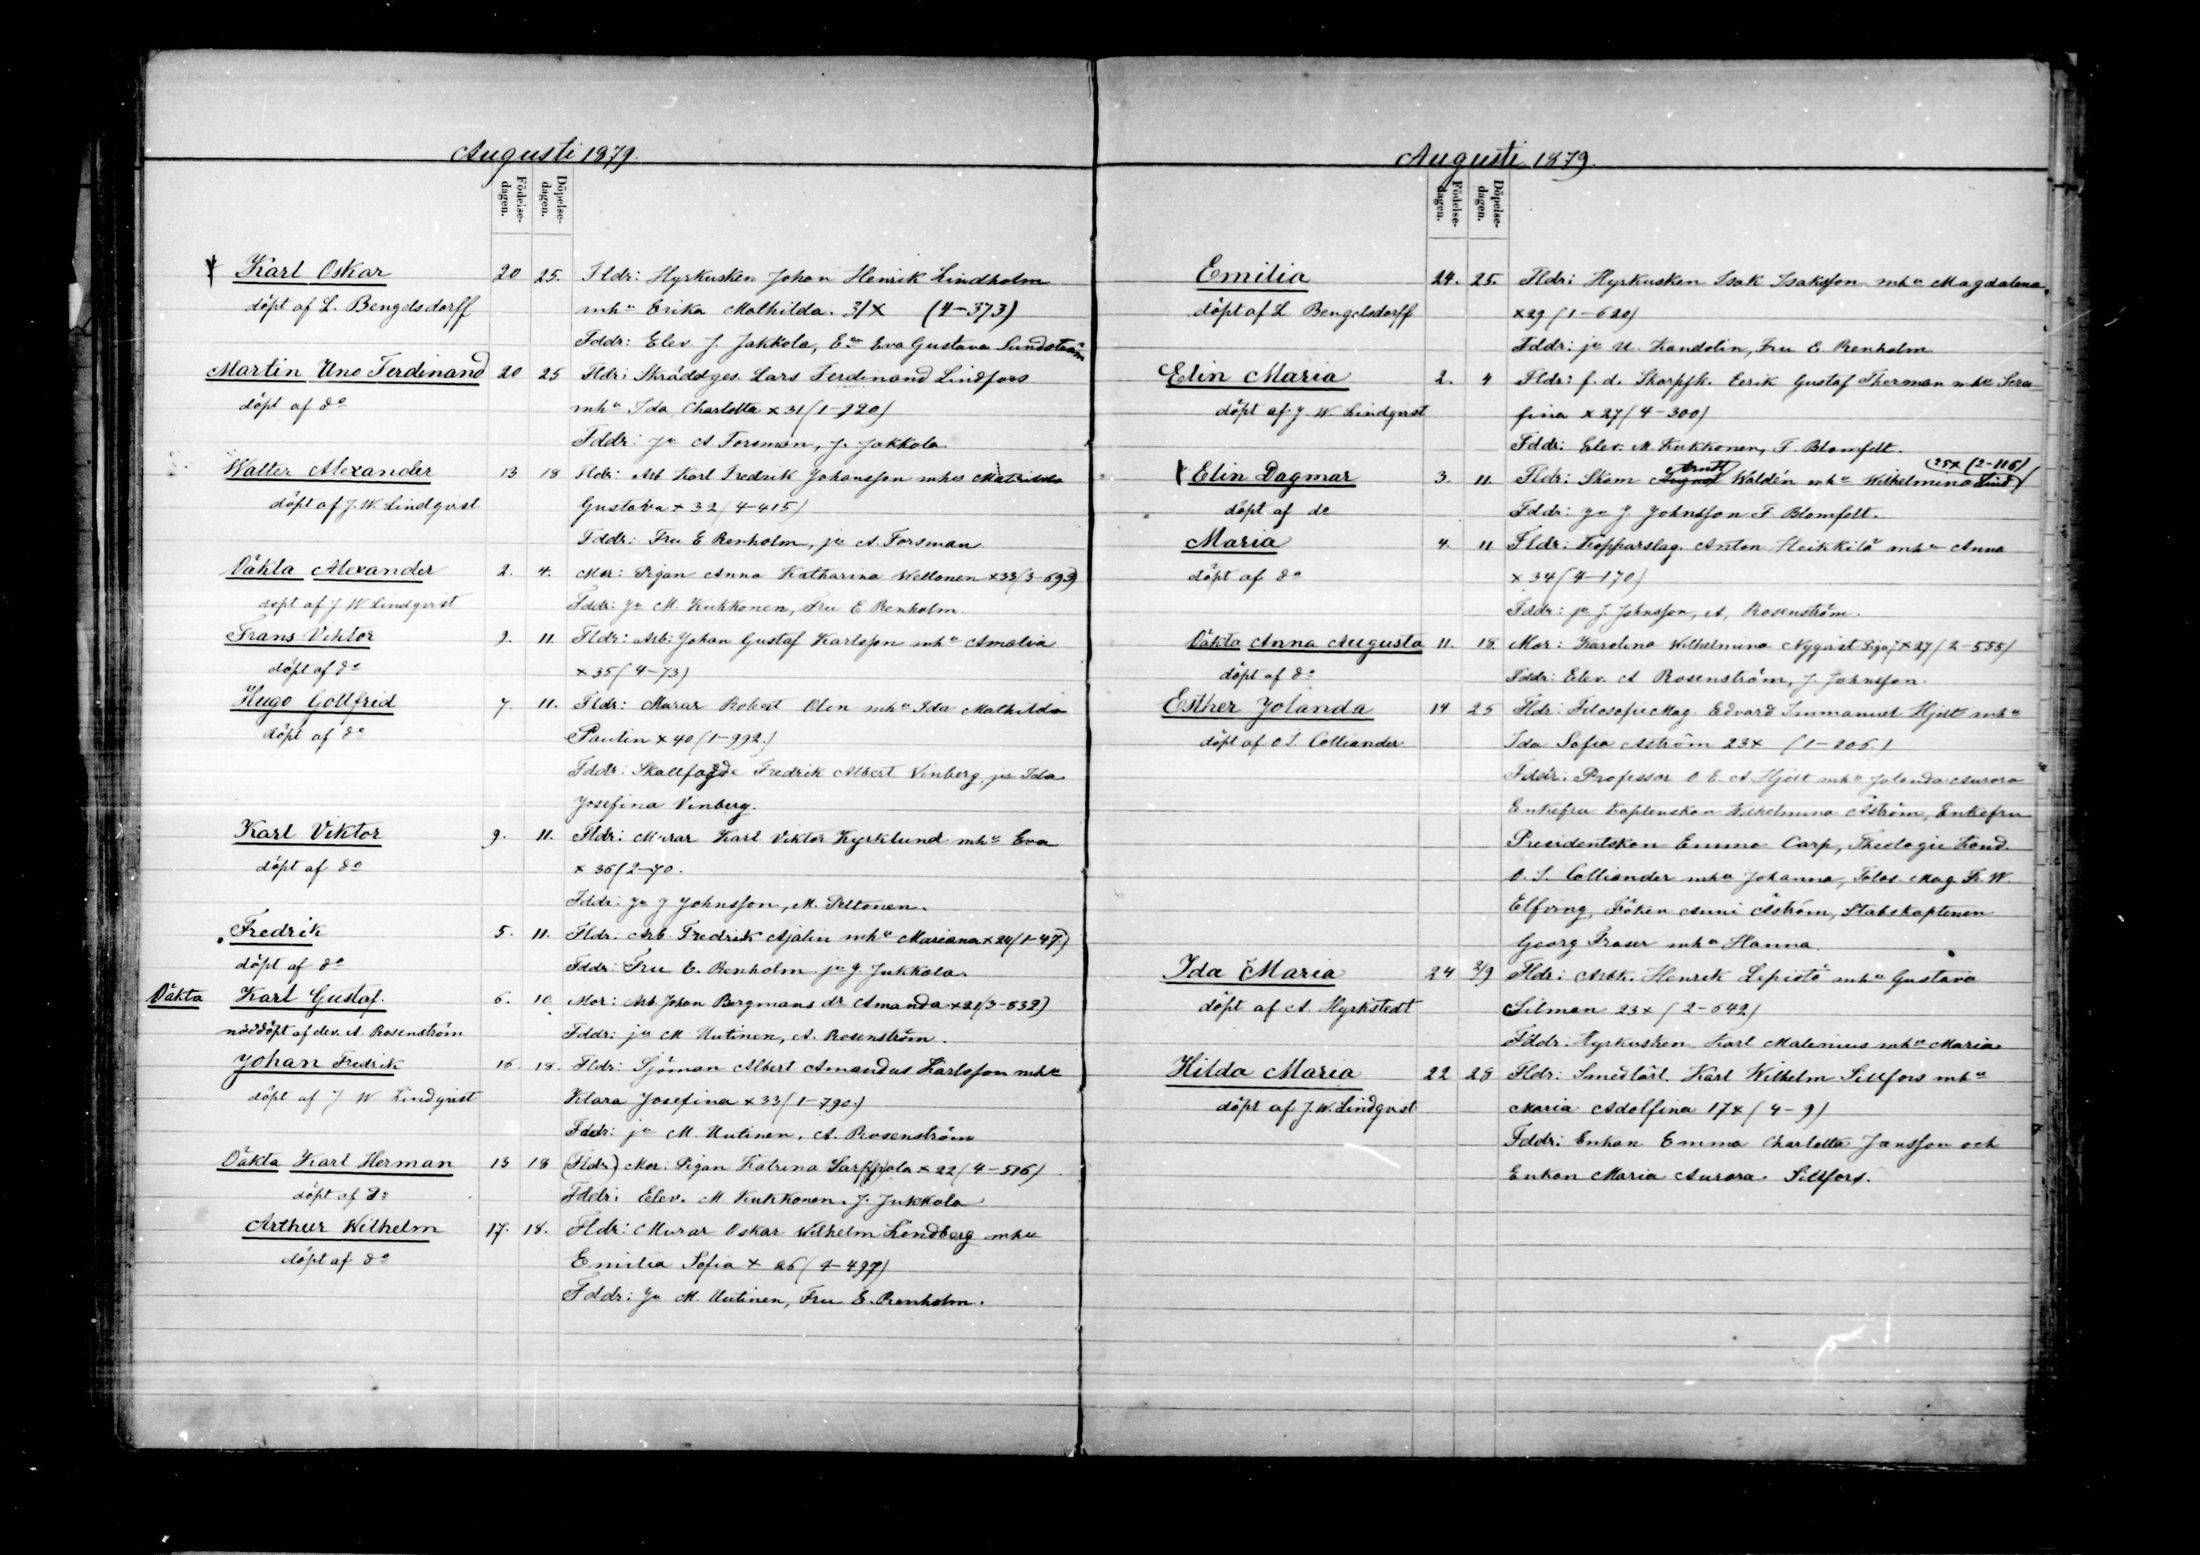 Augusti 1879.
Födelse-
dagen.
Döpelse-
dagen.
Karl Oskar 20 25. Fldr: Hyrkusken Johan Henrik Lindholm
döpt af L. Bengelsdorff mhu Erika Mathilda. 31 x (4-373)
Fddr: Elev J. Jakkola, Ea Eva Gustava Sundström
Martin Uno Ferdinand 20 25 Fldr: Skräddges. Lars Ferdinand Lindfors
döpt af do mhu Ida Charlotta x 31 (1-920)
Fddr: ju A Forsman, J. Jakkola
Walter Alexander 13 18 Fldr: Arb Karl Fredrik Johansson mhu Mathilda
döpt af J. W. Lindqvist Gustava x 32 (4-415)
Fddr: Fru E Renholm, ju A. Forsman
Oäkta Alexander 2. 4. Mor: Pigan Anna Katharina Wettonen x 33 (3-693)
döpt af J W Lindqvist Fddr: Ju M. Kukkonen, Fru E Renholm.
Frans Viktor 9. 11. Fldr: Arb: Johan Gustaf Karlsson mhu Amalia
döpt af do x 35 (4-73)
Hugo Gottfried 7 11. Fldr: Murar Robert Olin mhu Ida Mathilda
döpt af do Pautin x 40 (1-992.)
Fddr: Skallfogde Fredrik Albert Vinberg, ju Ida
Josefina Vinberg.
Karl Viktor 9. 11. Fldr: Murar Karl Viktor Kyrklund mhu Eva
döpt af do x 36 (2-70.
Fddr: Ju J Johnsson, M. Peltonen.
Fredrik 5. 11. Fldr: Arb. Fredrik Ajalin mhu Mariana x 24 (1-47)
döpt af do Fddr: Fru E. Renholm ju J Jukkola.
Oäkta Karl Gustaf. 6. 10. Mor: Arb. Johan Bergmans dr Amanda x 21 (3-532)
nöddöpt af elev. A. Rosenström Fddr: ju M Uutinen, A. Rosenström.
Johan Fredrik 16. 18. Fldr: Sjöman Albert Amandus Karlsson mhu
döpt af J W Lindqvist Klara Josefina x 33 (1-790.)
Fddr: ju M. Uutinen, A. Rosenström
Oäkta Karl Herman 13 18 (Fldr) Mor: Pigan Katrina Sarppola x 22 (4-516)
döpt af do Fddr: Elev. M Kukkonen. J. Jukkola
Arthur Wilhelm 17. 18. Fldr: Murar Oskar Wilhelm Lindberg mhu
döpt af do Emilia Sofia x 26 (4-497)
Fddr: Ju M. Uutinen, Fru E. Renholm.
Augusti 1879.
Födelse-
dagen.
Döpelse-
dagen.
Emilia 24. 25. Fldr: Hyrkusken Isak Isaksson mhu Magdalena
döpt af L Bengelsdorff x 29 (1-620)
Fddr: ju U. Kandolin, Fru E. Renholm
Elin Maria 2. 4 Fldr: f. d. Skarpsk. Eerik Gustaf Therman mhu Sera-
döpt af J. W. Lindqvist fina x 27 (4-300)
Fddr: Elev. M. Kukkonen, F. Blomfelt.
Arvitt 25 x (2-116)
Elin Dagmar 3. 11. Fldr: Skom August Waldén mhu Wilhelmina Lind
döpt af do Fddr: Ju J. Johnsson F. Blomfelt.
Maria 4. 11 Fldr: Kopparslag. Anton Heikkilä mhu Anna
döpt af do x 34 (4-170)
Fddr: ju J. Johnsson, A. Rosenström.
Oäkta Anna Augusta 11. 18 Mor: Karolina Wilhelmina Nyqvist Piga x 27 (2-555)
döpt af do Fddr: Elev. A Rosenström, J. Johnsson.
Esther Jolanda 14 25 Fldr: Filosofie Mag. Edvard Immanuel Hjelt mhu
döpt af O. I. Colliander Ida Sofia Åström 23 x (1-206.)
Fddr: Professor O. E. A Hjelt mhu Jolanda Aurora
Enkefru Kaptenskan Wilhelmina Åström, Enkefru
Presidentskan Emma Carp, Theologie Kand.
O. I. Colliander mhu Johanna, Folos. Mag Fr. W.
Elfving, Fröken Anni Åström, Stabskaptenen
Georg Fraser mhu Hanna.
Ida Maria 24 2/9 Fldr: Arbk. Henrik Lepistö mhu Gustava
döpt af A. Hyrkstedt Silman 23 x (2-642)
Fddr: Hyrkusken Karl Malenius mhu Maria
Hilda Maria 22 28 Fldr: Smedlärl. Karl Wilhelm Sillfors mhu
döpt af J. W. Lindqvist Maria Adolfina 17 x (4-9)
Fddr: Enkan Emma Charlotta Jansson och
Enkan Maria Aurora Sillfors.